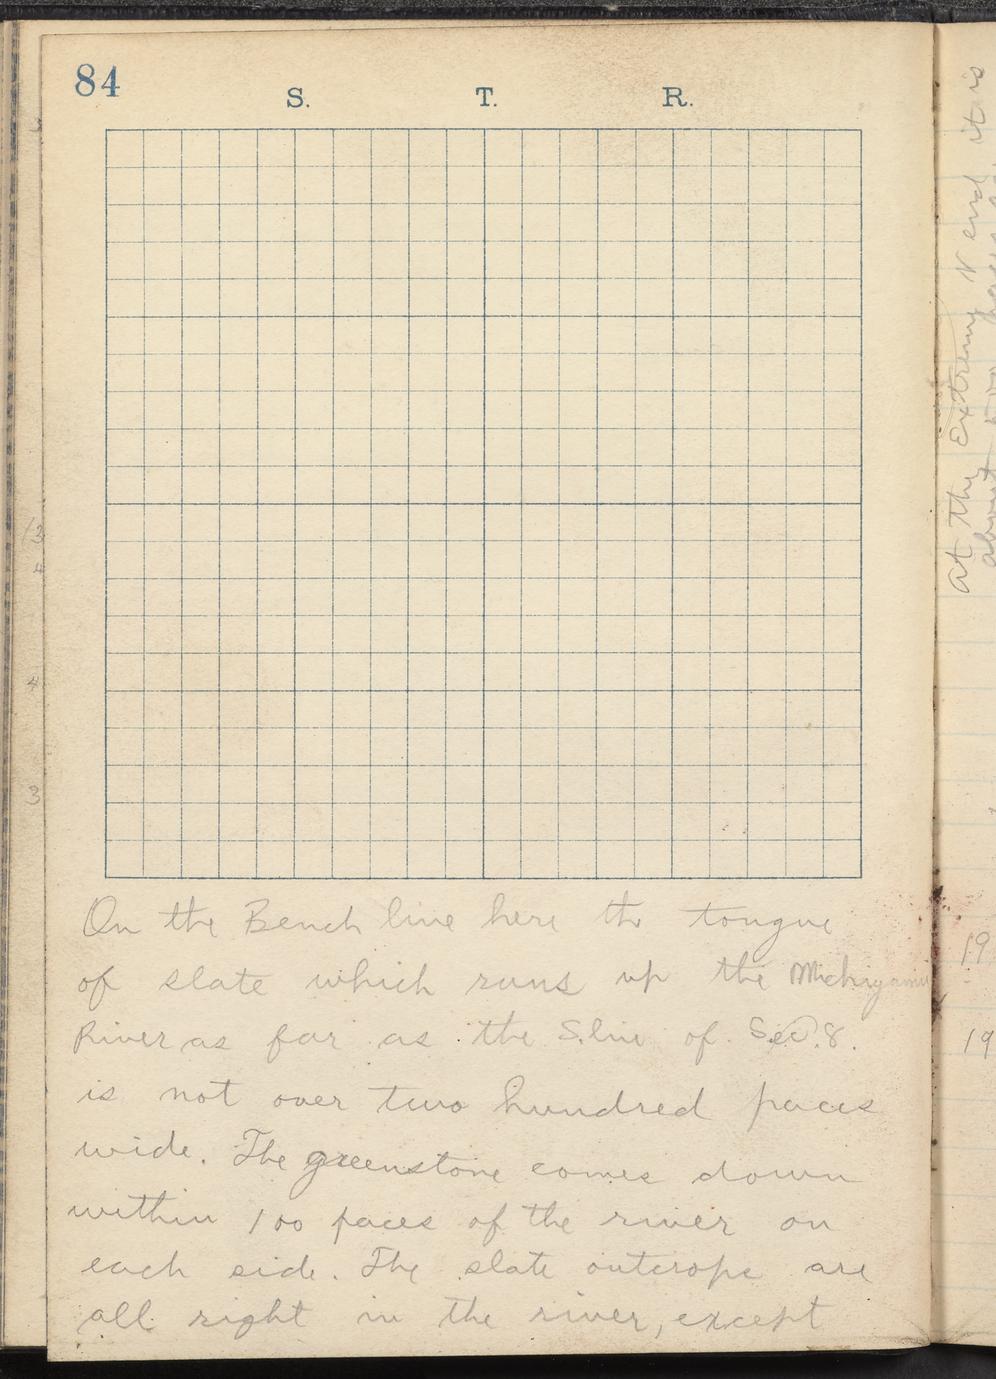 84
S. T. R.
On the Bench line here the tongue
of slate which runs up the Michigamii
River as far as the S. line of Sec. 8.
is not over two hundred paces
wide. The greenstone comes down
within 100 paces of the river on
each side. The slate outcrops are
all right in the river, except
at the Extreme N end it is
about
19
19